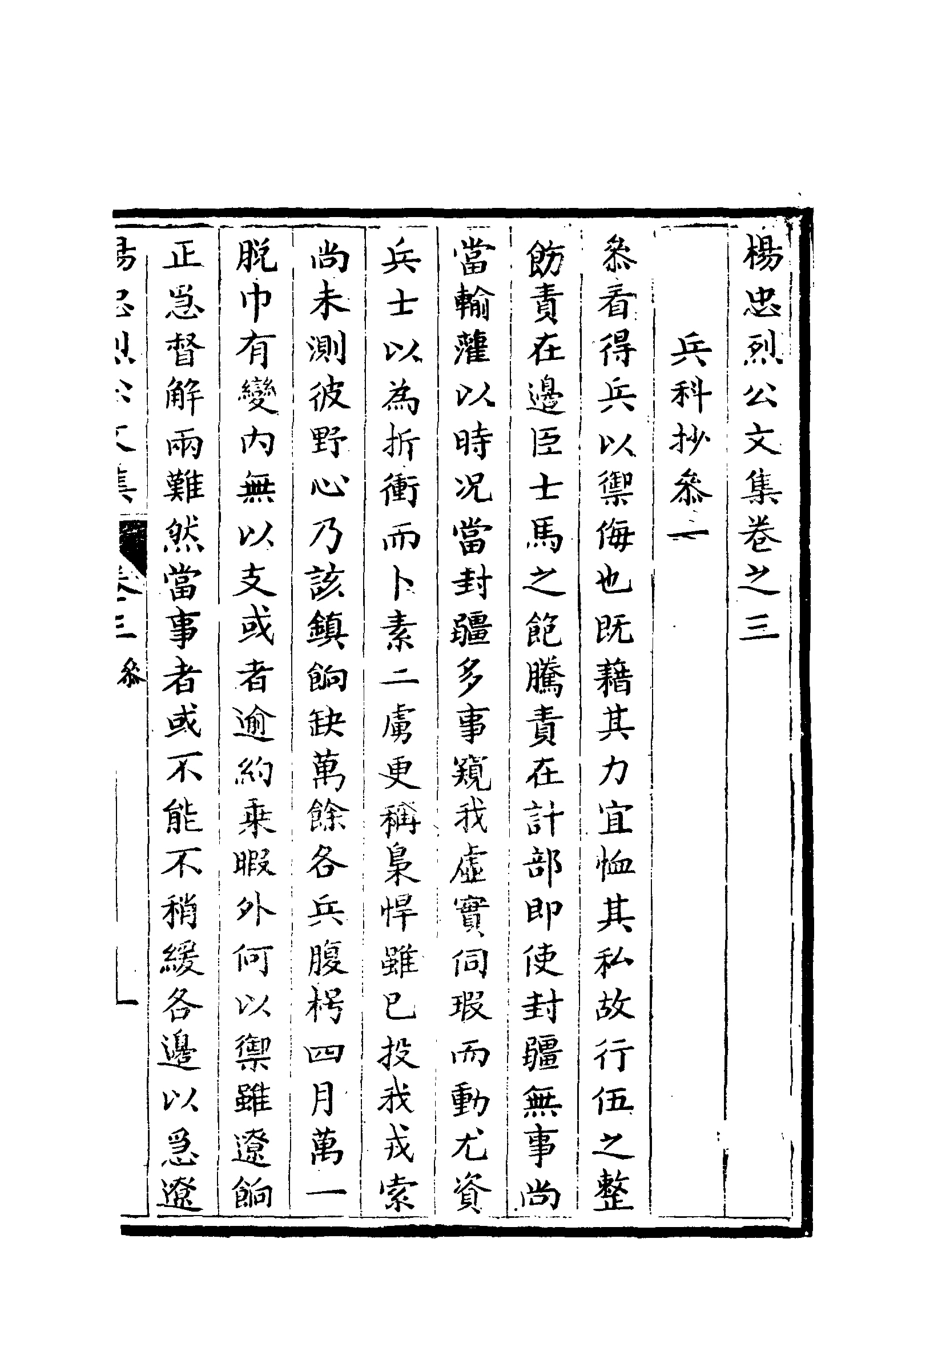 楊忠烈公文集卷之三
兵科抄叅一
叅看得兵以禦侮也既藉其力宜恤其私故行伍之整
飭責在邊臣士馬之飽騰責在計部即使封疆無事尚
當輸薩以時况當封疆多事窺我虛實伺瑕而動尤資
兵士以為折衝而卜素二虜更稱梟悍雖已投我戎索
尚未測彼野心乃該鎮餉缺萬餘各兵腹枵四月萬一
脫巾有變內無以支或者逾約乘暇外何以禦雖遼餉
正急督解兩難然當事者或不能不稍緩各邊以急遼
楊忠烈公文集 卷三 叅 一